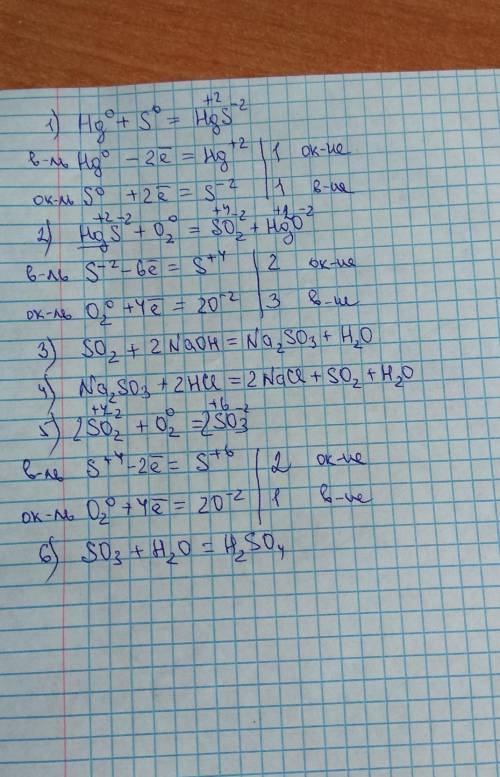 1) Hg⁰ + S⁰ = Hg⁺²S⁻²
в-ль Hg⁰ - 2ē = Hg⁺² | 1 ок-ие
ок-ль S⁰ + 2ē = S⁻² | 1 в-ие
2) Hg⁺²S⁻² + O₂⁰ = S⁺⁴O₂⁻² + Hg⁺²O⁻²
в-ль S⁻² - 6ē = S⁺⁴ | 2 ок-ие
ок-ль O₂⁰ + 4ē = 2O⁻² | 3 в-ие
3) SO₂ + 2NaOH = Na₂SO₃ + H₂O
4) Na₂SO₃ + 2HCl = 2NaCl + SO₂ + H₂O
5) 2S⁺⁴O₂⁻² + O₂⁰ = 2S⁺⁶O₃⁻²
в-ль S⁺⁴ - 2ē = S⁺⁶ | 2 ок-ие
ок-ль O₂⁰ + 4ē = 2O⁻² | 1 в-ие
6) SO₃ + H₂O = H₂SO₄